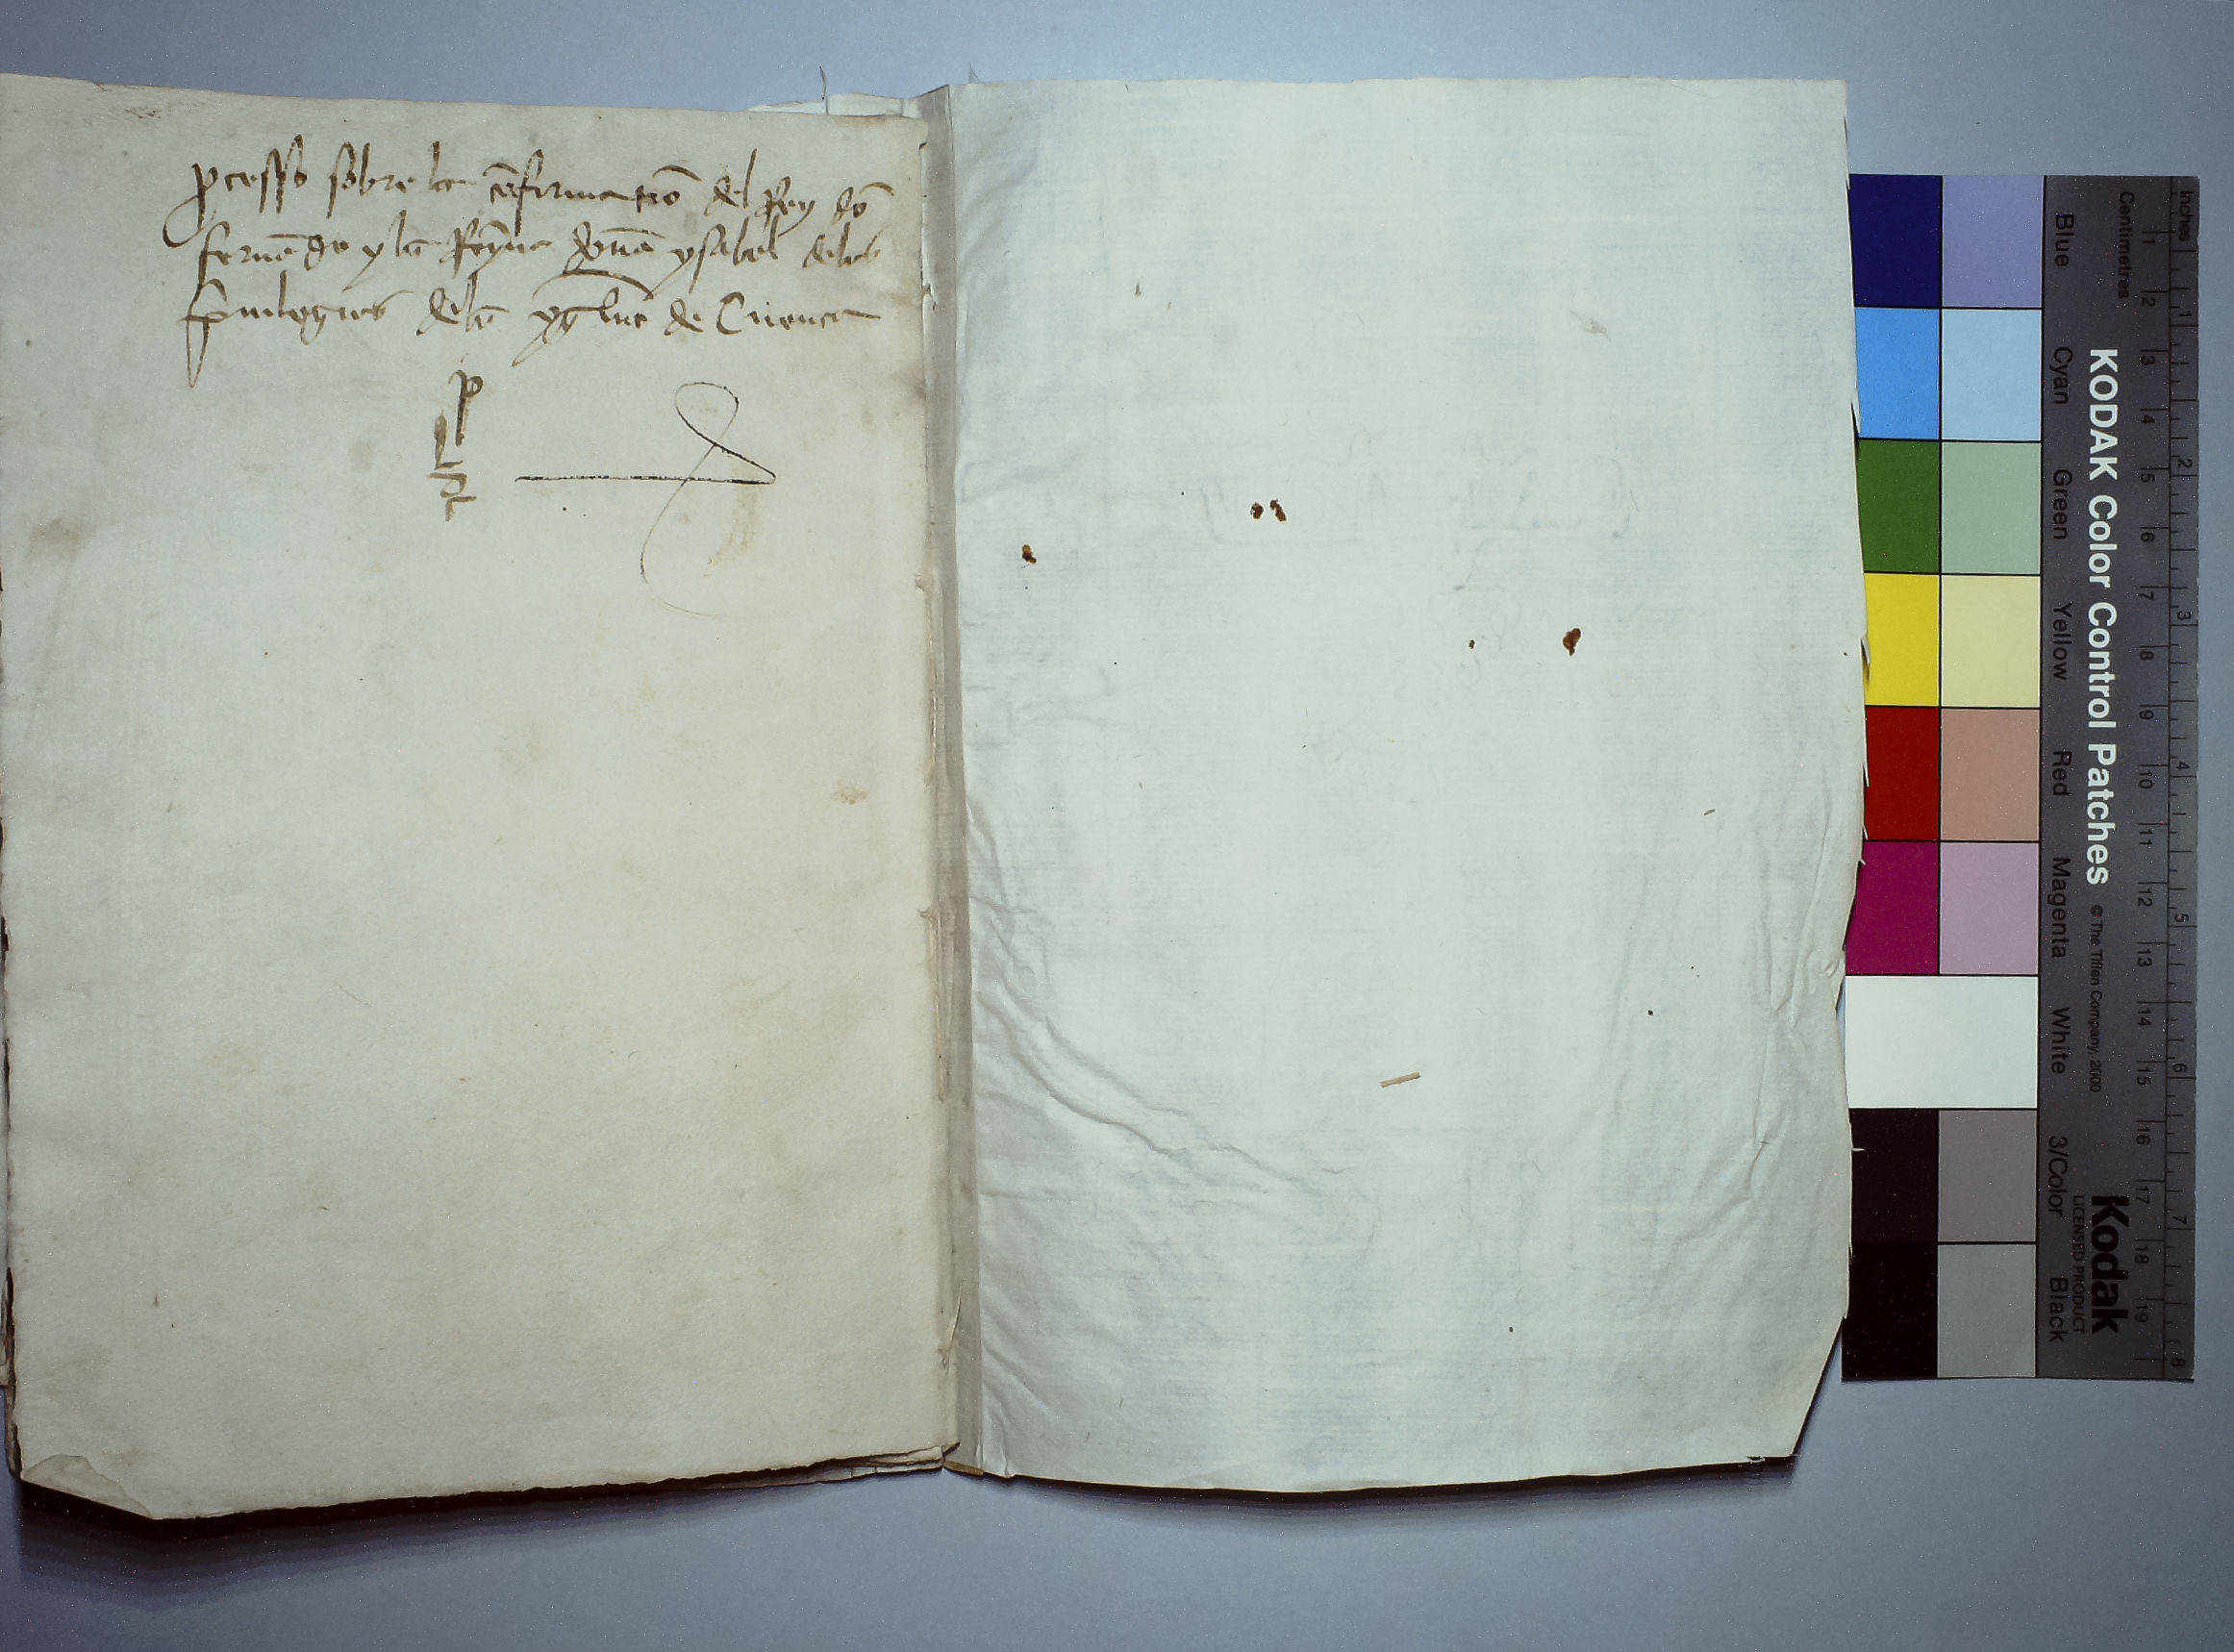 ꝓcesso sobre la cõfirmatiõ del Rey dõ
fernãdo y la Reyna doña ysabel delos
p̃uilegios dela ygl̃ia de Cuenca
Inches
Centimetres
1 2 3 4 5 6 7 8 9 10 11 12 13 14 15 16 17 18 19
1 2 3 4 5 6 7 8
KODAK Color Control Patches
© The Tiffen Company, 2000
Kodak
LICENSED PRODUCT
Blue Cyan Green Yellow Red Magenta White 3/Color Black